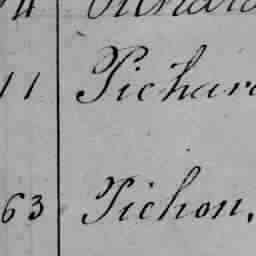 11 Pichar
63 Pichon.